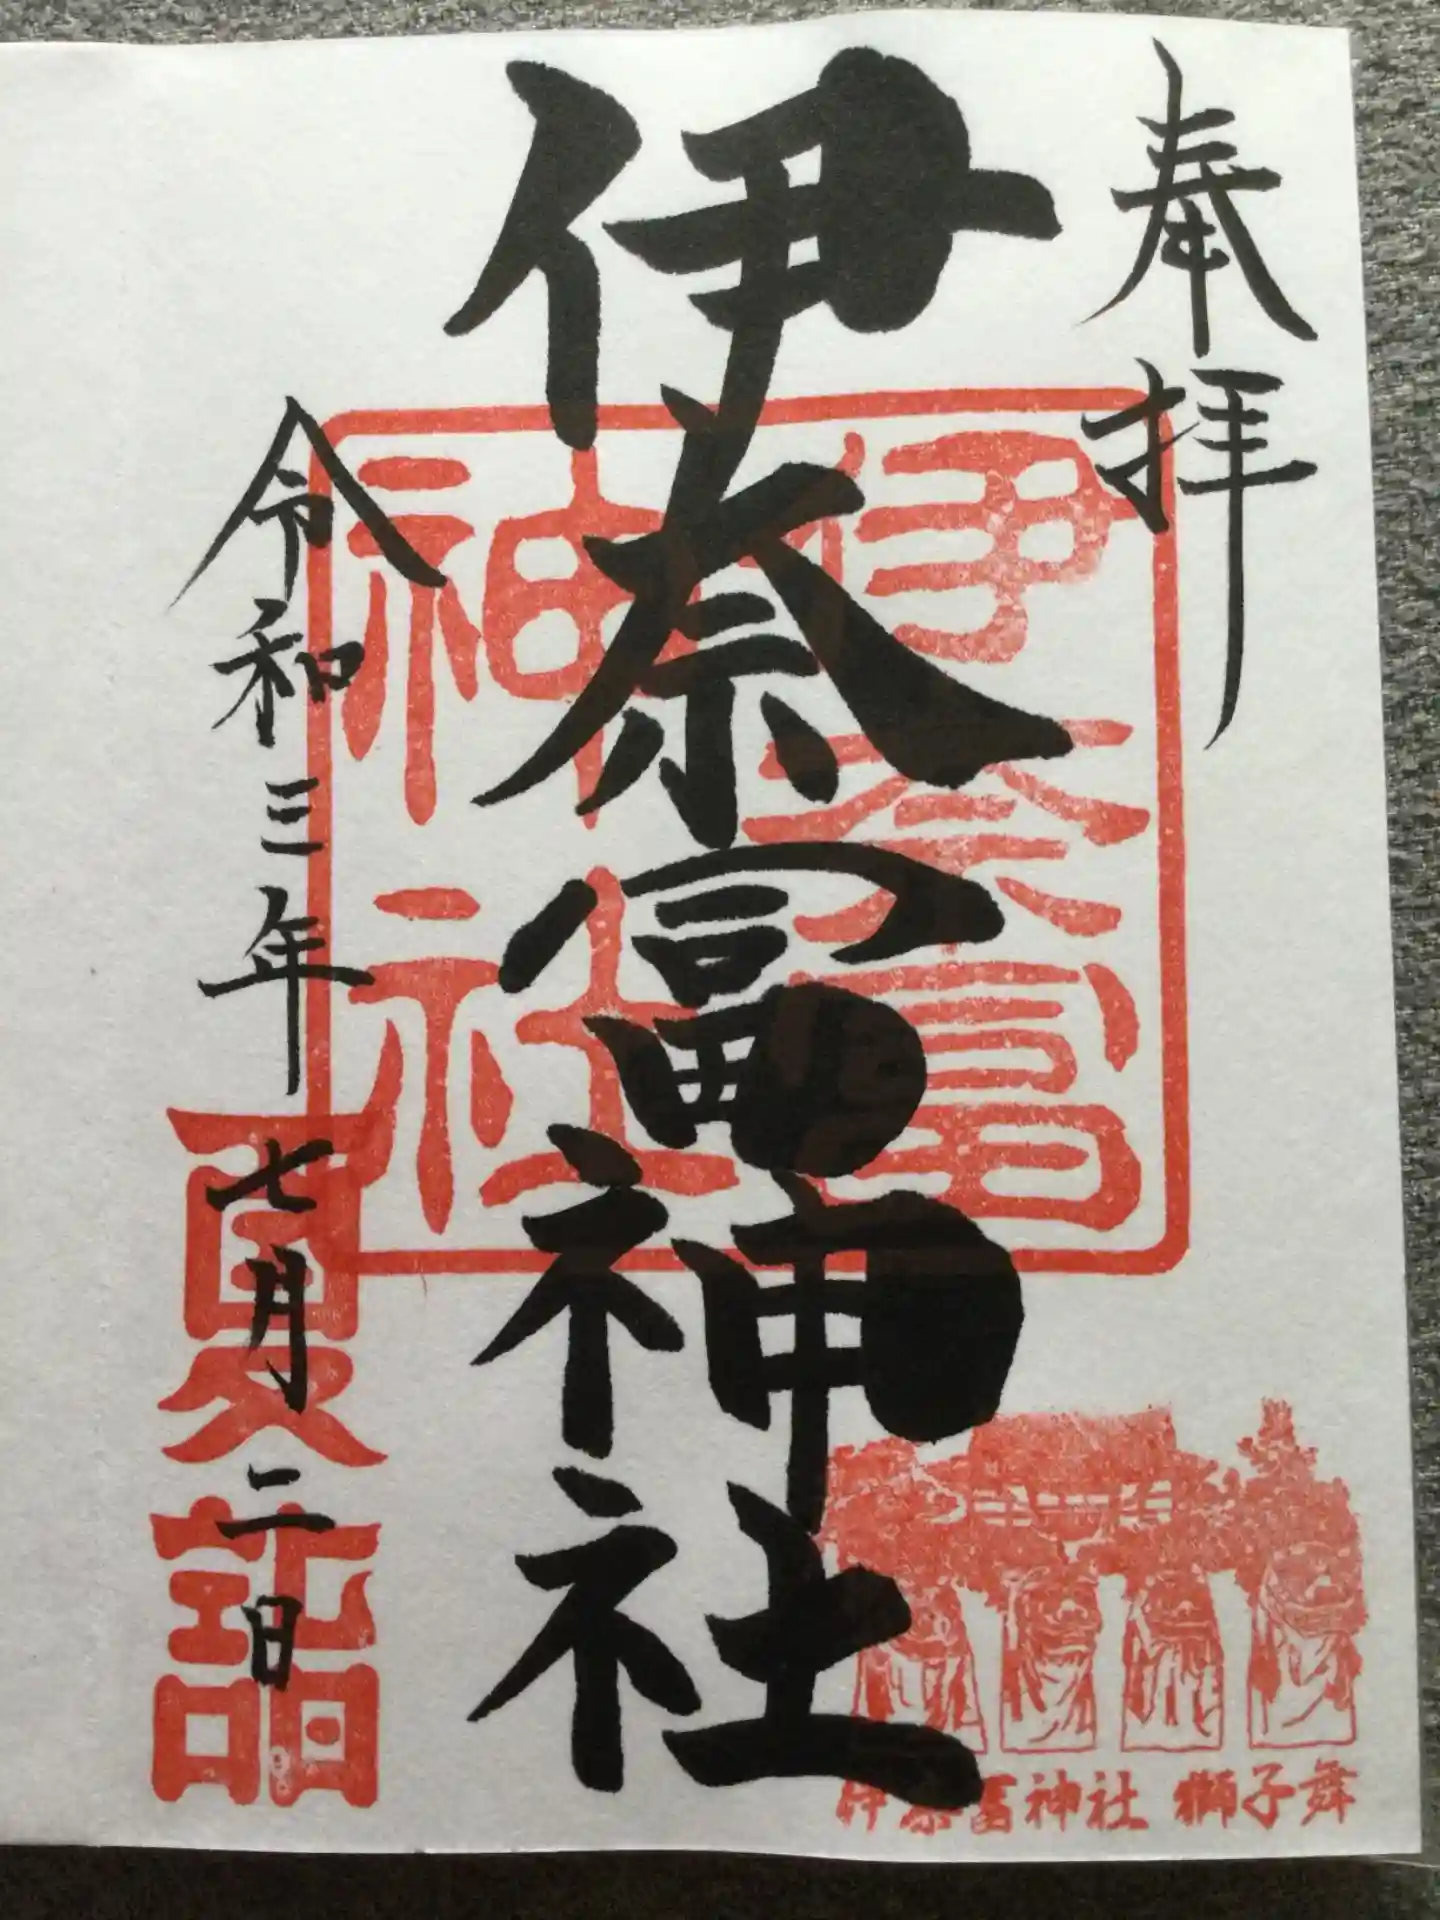 奉拝
伊奈冨神社
伊奈冨
神社
令和三年七月二日
夏詣
伊奈冨神社 獅子舞